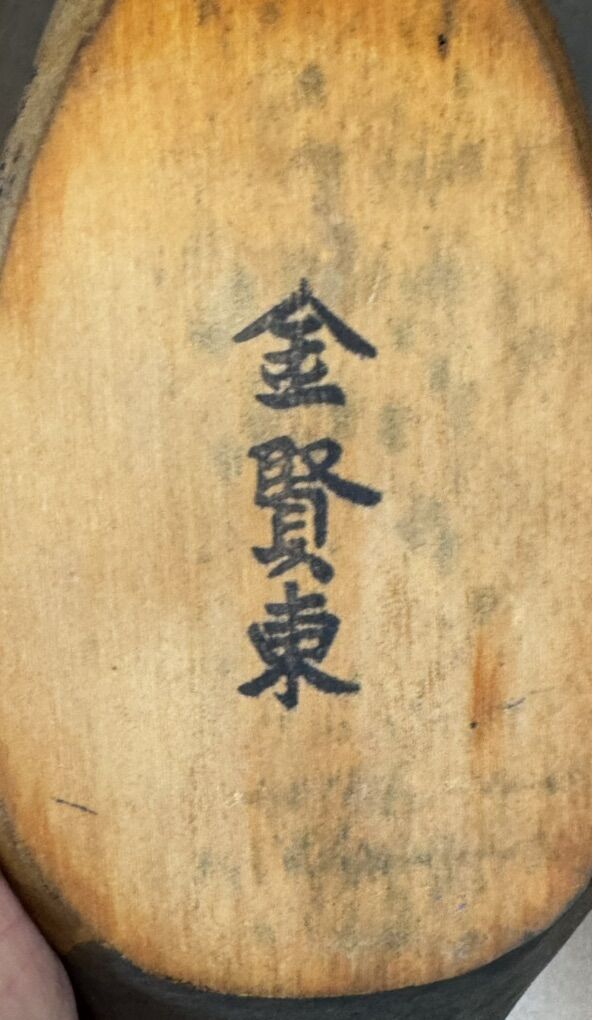 金賢東